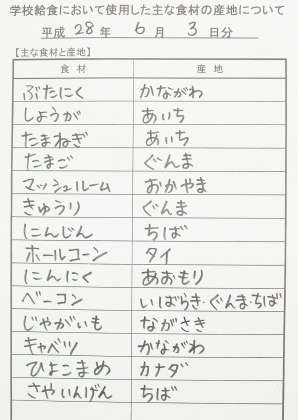 学校給食において使用した主な食材の産地について
平成 28 年 6 月 3 日分
【主な食材と産地】
食材 産地
ぶたにく かながわ
しょうが あいち
たまねぎ あいち
たまご ぐんま
マッシュルーム おかやま
きゅうり ぐんま
にんじん ちば
ホールコーン タイ
にんにく あおもり
ベーコン いばらき・ぐんま・ちば
じゃがいも ながさき
キャベツ かながわ
ひよこまめ カナダ
さやいんげん ちば